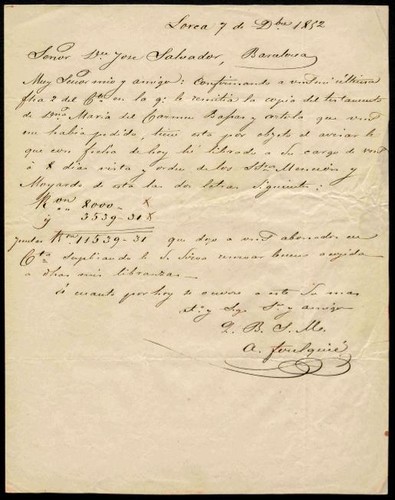 Lorca 7 de Dbre 1852
Señor Dn José Salvador, Barcelona
Muy Señor mio y amigo: Confirmando a vmd mi última
fha 2 del Cte en la q. le remitia la copia del testamento
de Dña Maria del Carmen que vmd
me habia pedido, tiene esta por objeto el avisar le
que con fecha de hoy hé librado a su cargo de vmd
á 8 dias vista y orden de los Sres Mención y
Moyardo de esta las dos letras siguiente:
Rvon 8000 - "
y 3539-31
Juntas Rvon 11539-31 que dejo a vmd abonados en
Cta suplicando le se sirva acojida
a dhas mis libranzas.
Es cuanto por hoy se ofrece a este Su mas
at. y Seg. Sr. y amigo
Q. B. S. M.
A. Foulquié